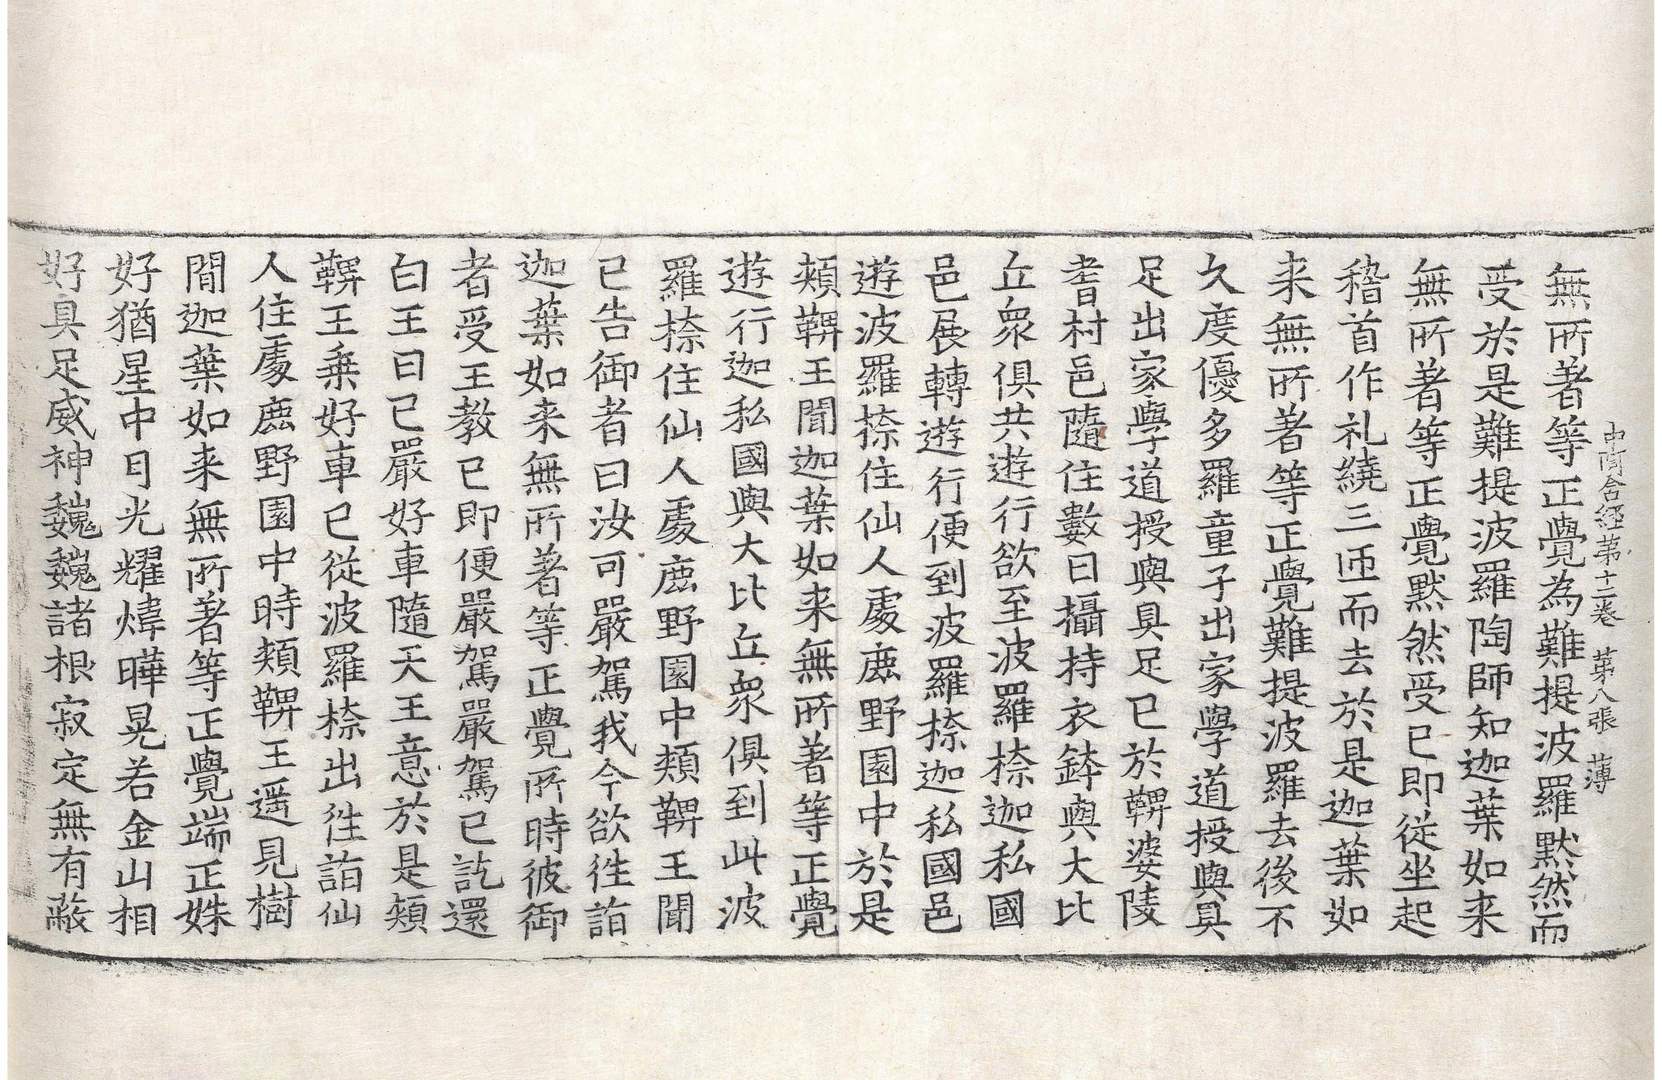 中阿含経第十二卷 第八張 薄
無所著等正覺為難提波羅默然而
受於是難提波羅陶師知迦葉如来
無所著等正覺默然受已即從坐起
稽首作礼繞三匝而去於是迦葉如
来無所著等正覺難提波羅去後不
久度優多羅童子出家學道授與具
足出家學道授與具足已於鞞婆陵
耆村邑隨住數日攝持衣鉢與大比
丘衆俱共遊行欲至波羅㮈迦私國
邑展轉遊行便到波羅㮈迦私國邑
遊波羅㮈住仙人處鹿野園中於是
頰鞞王聞迦葉如来無所著等正覺
遊行迦私國與大比丘衆俱到此波
羅㮈住仙人處鹿野園中頰鞞王聞
已告御者曰汝可嚴駕我今欲往詣
迦葉如来無所著等正覺所時彼御
者受王教已即便嚴駕嚴駕已訖還
白王曰已嚴好車隨天王意於是頰
鞞王乗好車已從波羅㮈出往詣仙
人住處鹿野園中時頰鞞王遥見樹
間迦葉如来無所著等正覺端正姝
好猶星中月光耀煒曄晃若金山相
好具足威神巍巍諸根寂定無有蔽